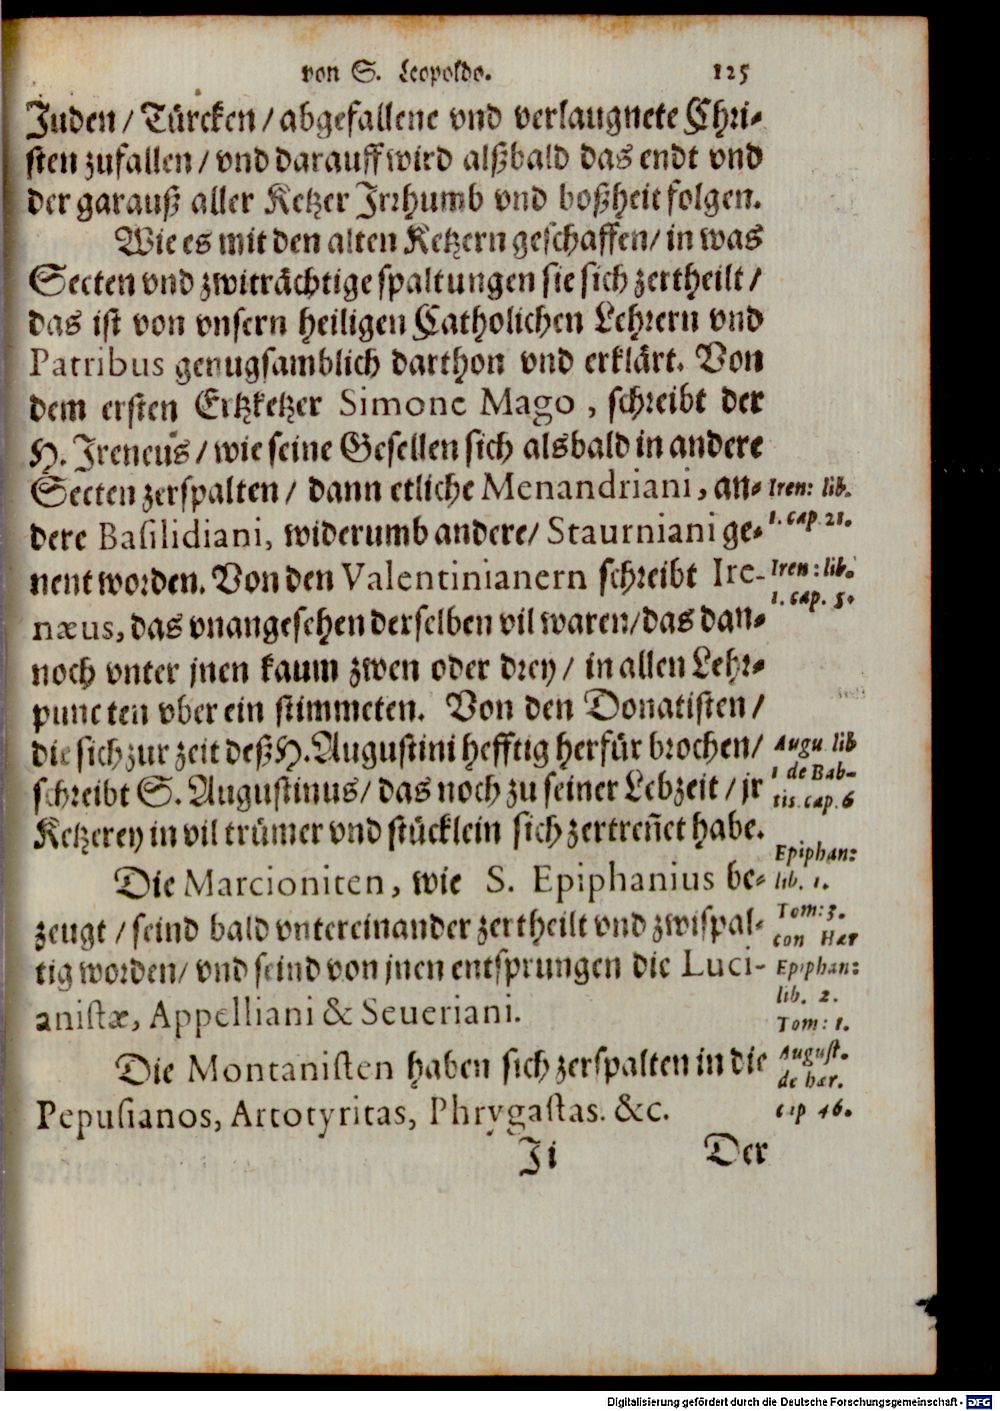 von S. Leopoldo. 125
Juden / Türcken / abgefallene vnd verlaugnete Chri⸗
sten zufallen / vnd darauff wird alßbald das endt vnd
der garauß aller Ketzer Irrhumb vnd boßheit folgen.
Wie es mit den alten Ketzern geschaffen / in was
Secten vnd zwiträchtige spaltungen sie sich zertheilt /
das ist von vnsern heiligen Catholichen Lehrern vnd
Patribus genugsamblich darthon vnd erklärt. Von
dem ersten Ertzketzer Simone Mago , schreibt der
H. Ireneus / wie seine Gesellen sich alsbald in andere
Secten zerspalten / dann etliche Menandriani, an⸗
Iren: lib.
1. cap. 21.
dere Basilidiani, widerumb andere / Staurniani ge⸗
nent worden. Von den Valentinianern schreibt Ire-
Iren: lib.
1. cap. 5.
næus, das vnangesehen derselben vil waren / das dan⸗
noch vnter jnen kaum zwen oder drey / in allen Lehr⸗
puncten vber ein stimmeten. Von den Donatisten /
die sich zur zeit deß H. Augustini hefftig herfür brochen /
Augu. lib
1 de Bab-
tis. cap. 6
schreibt S. Augustinus / das noch zu seiner Lebzeit / jr
Ketzerey in vil trümer vnd stücklein sich zertreñet habe.
Die Marcioniten, wie S. Epiphanius be⸗
Epiphan:
lib. 1.
Tom: 3.
con Hær
zeugt / seind bald vntereinander zertheilt vnd zwispal⸗
tig worden / vnd seind von jnen entsprungen die Luci-
Epiphan:
lib. 2.
Tom: 1.
anistæ, Appelliani & Seueriani.
Die Montanisten haben sich zerspalten in die
August.
de hær.
cap 46.
Pepusianos, Artotyritas, Phrygastas. &c.
Ii Der
Digitalisierung gefördert durch die Deutsche Forschungsgemeinschaft - DFG